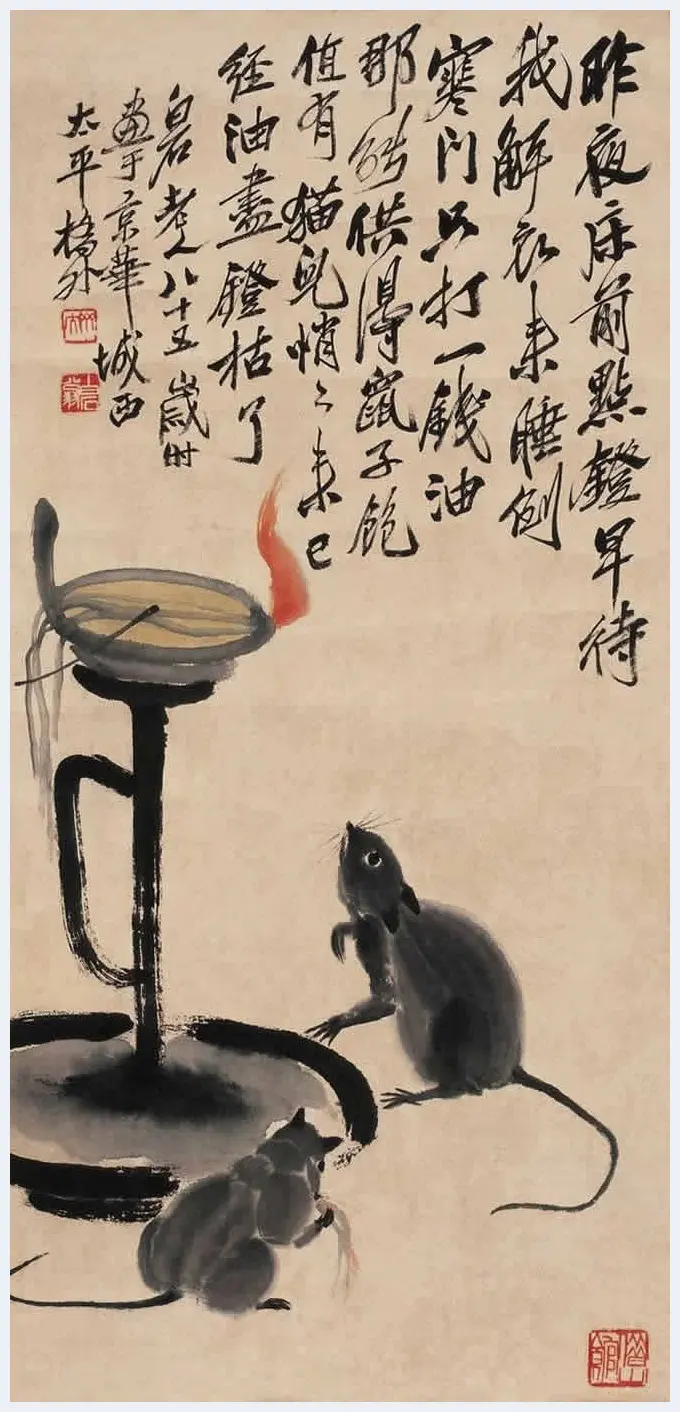 昨夜床前點鐙早待
我解衣來睡倒
寒門只打一錢油
那能供得鼠子飽
值有猫兒悄〻來已
經油盡鐙枯了
白石老人八十五歲时
畫于京華城西
太平橋外